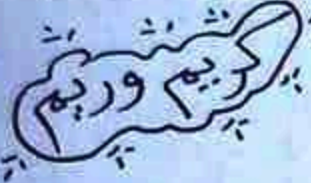 كريم وريم